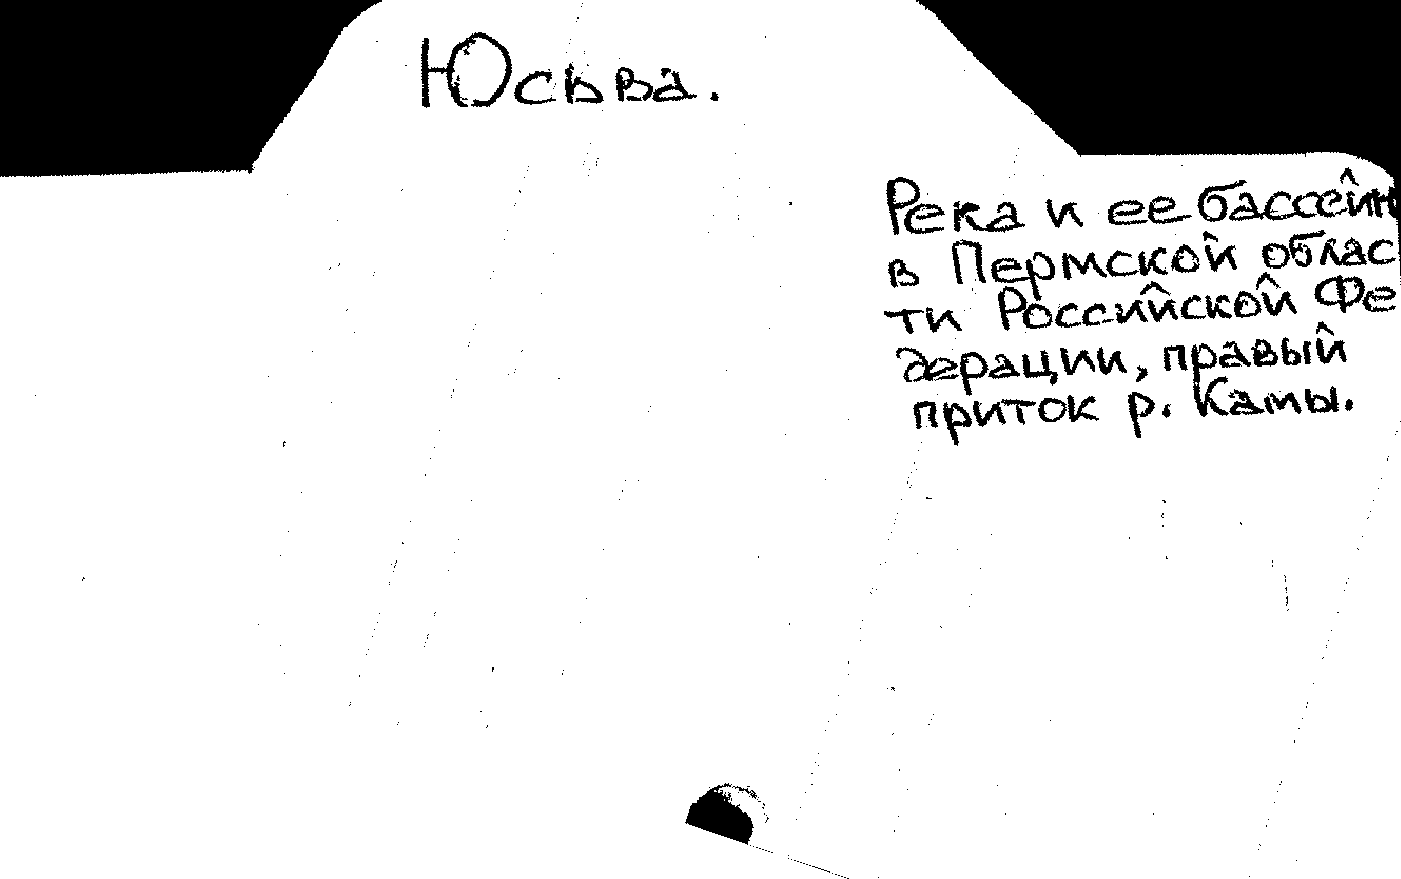 Юсьва.
Река и ее бассейн
в Пермской облас
ти Российской Фе
дерации, правый
приток р. Камы.